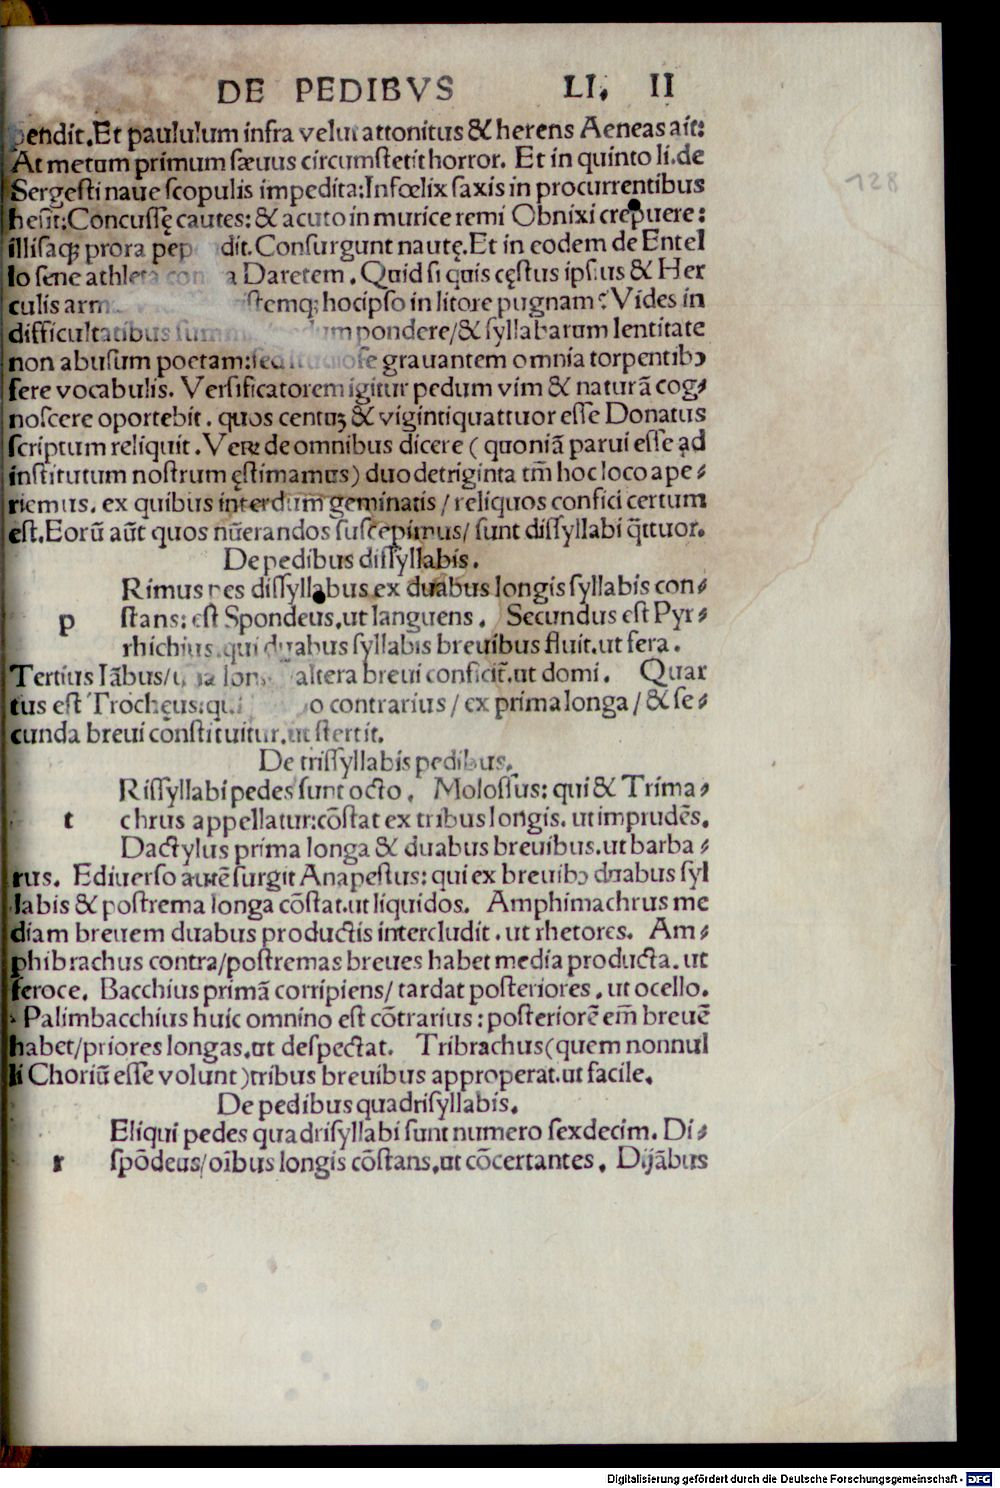 DE PEDIBVS LI. II
128
pendit. Et paululum infra velut attonitus & herens Aeneas ait:
At metum primum sæuus circumstetit horror. Et in quinto li. de
Sergesti naue scopulis impedita: Infœlix saxis in procurrentibus
hesit: Concussę cautes: & acuto in murice remi Obnixi crepuere:
illisaqꝫ prora pep dit. Consurgunt nautę. Et in eodem de Entel
lo sene athleta a Daretem. Quid si quis cęstus ipsius & Her
culis arm stemqꝫ hoc ipso in litore pugnam? Vides in
difficultatibus pondere/ & syllabarum lentitate
non abusum poetam: sed studiose grauantem omnia torpentibꝰ
fere vocabulis. Versificatorem igitur pedum vim & naturā cog⸗
noscere oportebit. quos centuꝫ & vigintiquattuor esse Donatus
scriptum reliquit. Veꝝ de omnibus dicere ( quoniā parui esse ad
institutum nostrum ęstimamus) duodetriginta tm̄ hoc loco ape⸗
riemus. ex quibus interdum geminatis / reliquos confici certum
est. Eorū aūt quos nūerandos suscepimus/ sunt dissyllabi q̄ttuor.
De pedibus dissyllabis.
Rimus pes dissyllabus ex duabus longis syllabis con⸗
p stans: est Spondeus. ut languens. Secundus est Pyr⸗
rhichius. qui duabus syllabis breuibus fluit. ut fera.
Tertius Iābus/ altera breui conficit̄. ut domi. Quar
tus est Trochęus: qui o contrarius / ex prima longa / & se⸗
cunda breui constituitur. ut stertit.
De trissyllabis pedibus.
Rissyllabi pedes sunt octo. Molossus: qui & Trima⸗
t chrus appellatur: cōstat ex tribus longis. ut imprudēs.
Dactylus prima longa & duabus breuibus. ut barba⸗
rus. E diuerso autē surgit Anapestus: qui ex breuibꝰ duabus syl
labis & postrema longa cōstat. ut liquidos. Amphimachrus me
diam breuem duabus productis intercludit. ut rhetores. Am⸗
phibrachus contra/ postremas breues habet media producta. ut
feroce. Bacchius primā corripiens/ tardat posteriores. ut ocello.
Palimbacchius huic omnino est cōtrarius: posteriorē em̄ breuē
habet/ priores longas. ut despectat. Tribrachus (quem nonnul
li Choriū esse volunt) tribus breuibus approperat. ut facile.
De pedibus quadrisyllabis.
Eliqui pedes quadrisyllabi sunt numero sexdecim. Di⸗
r spōdeus/ oībus longis cōstans. ut cōcertantes. Dijābus
Digitalisierung gefördert durch die Deutsche Forschungsgemeinschaft - DFG